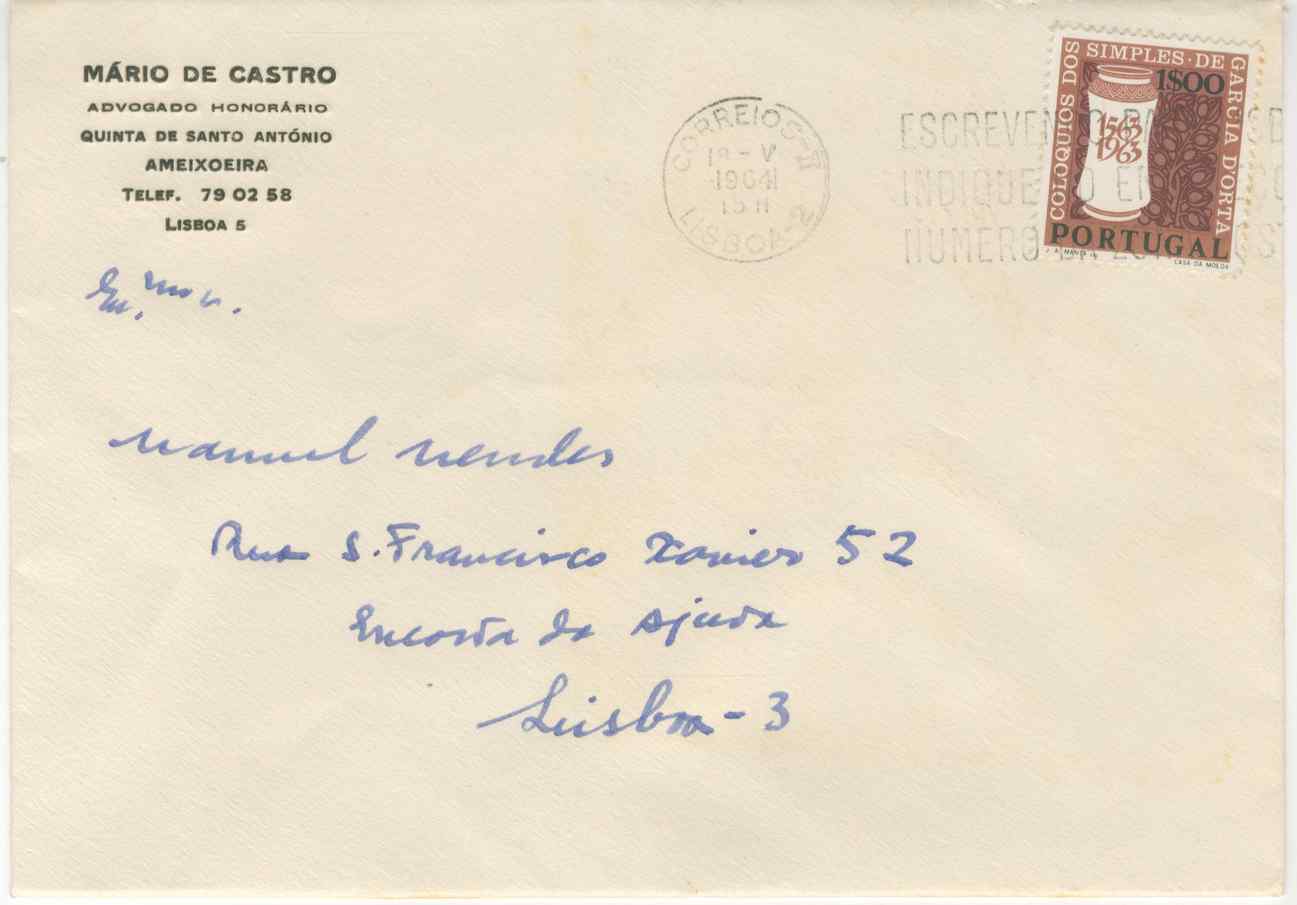 MÁRIO DE CASTRO
ADVOGADO HONORÁRIO
QUINTA DE SANTO ANTÓNIO
AMEIXOEIRA
TELEF. 79 02 58
LISBOA 5
CORREIOS-II
V
1964
LISBOA-2
ESCREVEN
INDIQUE
NUMERO
COLOQUIOS DOS SIMPLES·DE GARCIA D'ORTA
1$00
1563
1963
PORTUGAL
CASA DA MOEDA
Manuel Mendes
Rua S. Francisco Xavier 52
Encosta da Ajuda
Lisboa-3